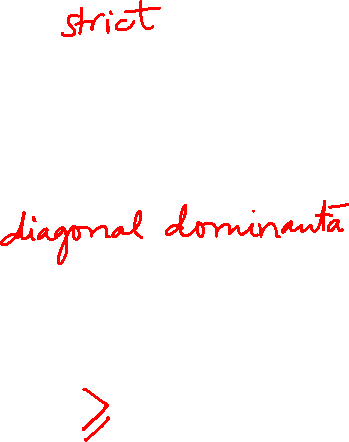 strict
diagonal dominantă
⩾